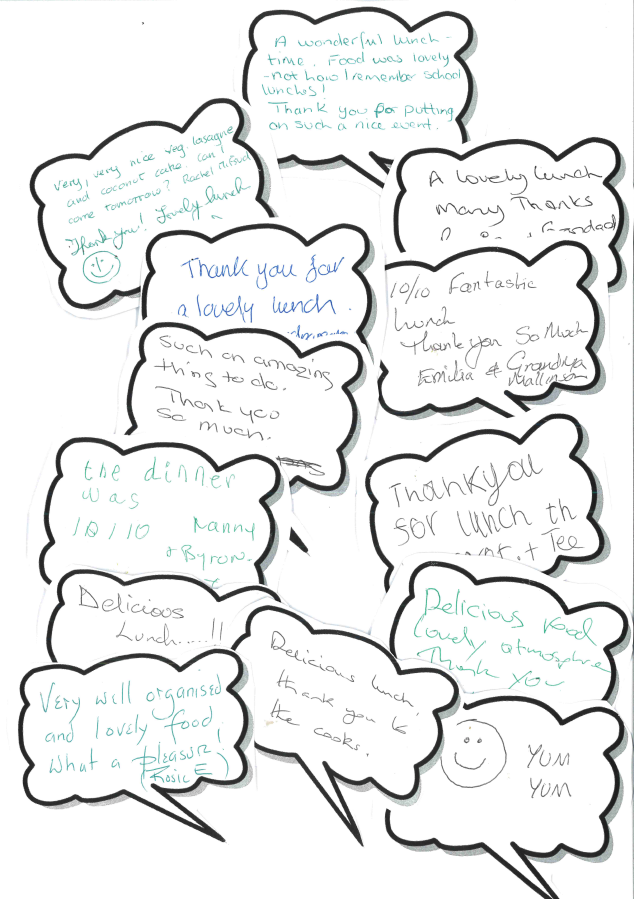 A wonderful lunch-
time. Food was lovely
-not how I remember school
lunches!
Thank you for putting
on such a nice event.
Very, very nice veg lasagne
and coconut cake. Can I
come tomorrow? Rachel
Thank you! Lovely lunch
A lovely lunch
Many Thanks
Grandad
Thank you for
a lovely lunch.
10/10 Fantastic
lunch
Thank you So Much
Emilia & Grandma
Mallinson
Such an amazing
thing to do.
Thank you
so much.
the dinner
was
10/10 Nanny
+ Byron.
Thankyou
for lunch th
+ Tee
Delicious
Lunch.....!!
Delicious food
lovely atmosphere
Thank you
Delicious lunch,
thank you to
the cooks.
Very well organised
and lovely food.
What a pleasure!
(Rosie E)
YUM
YUM